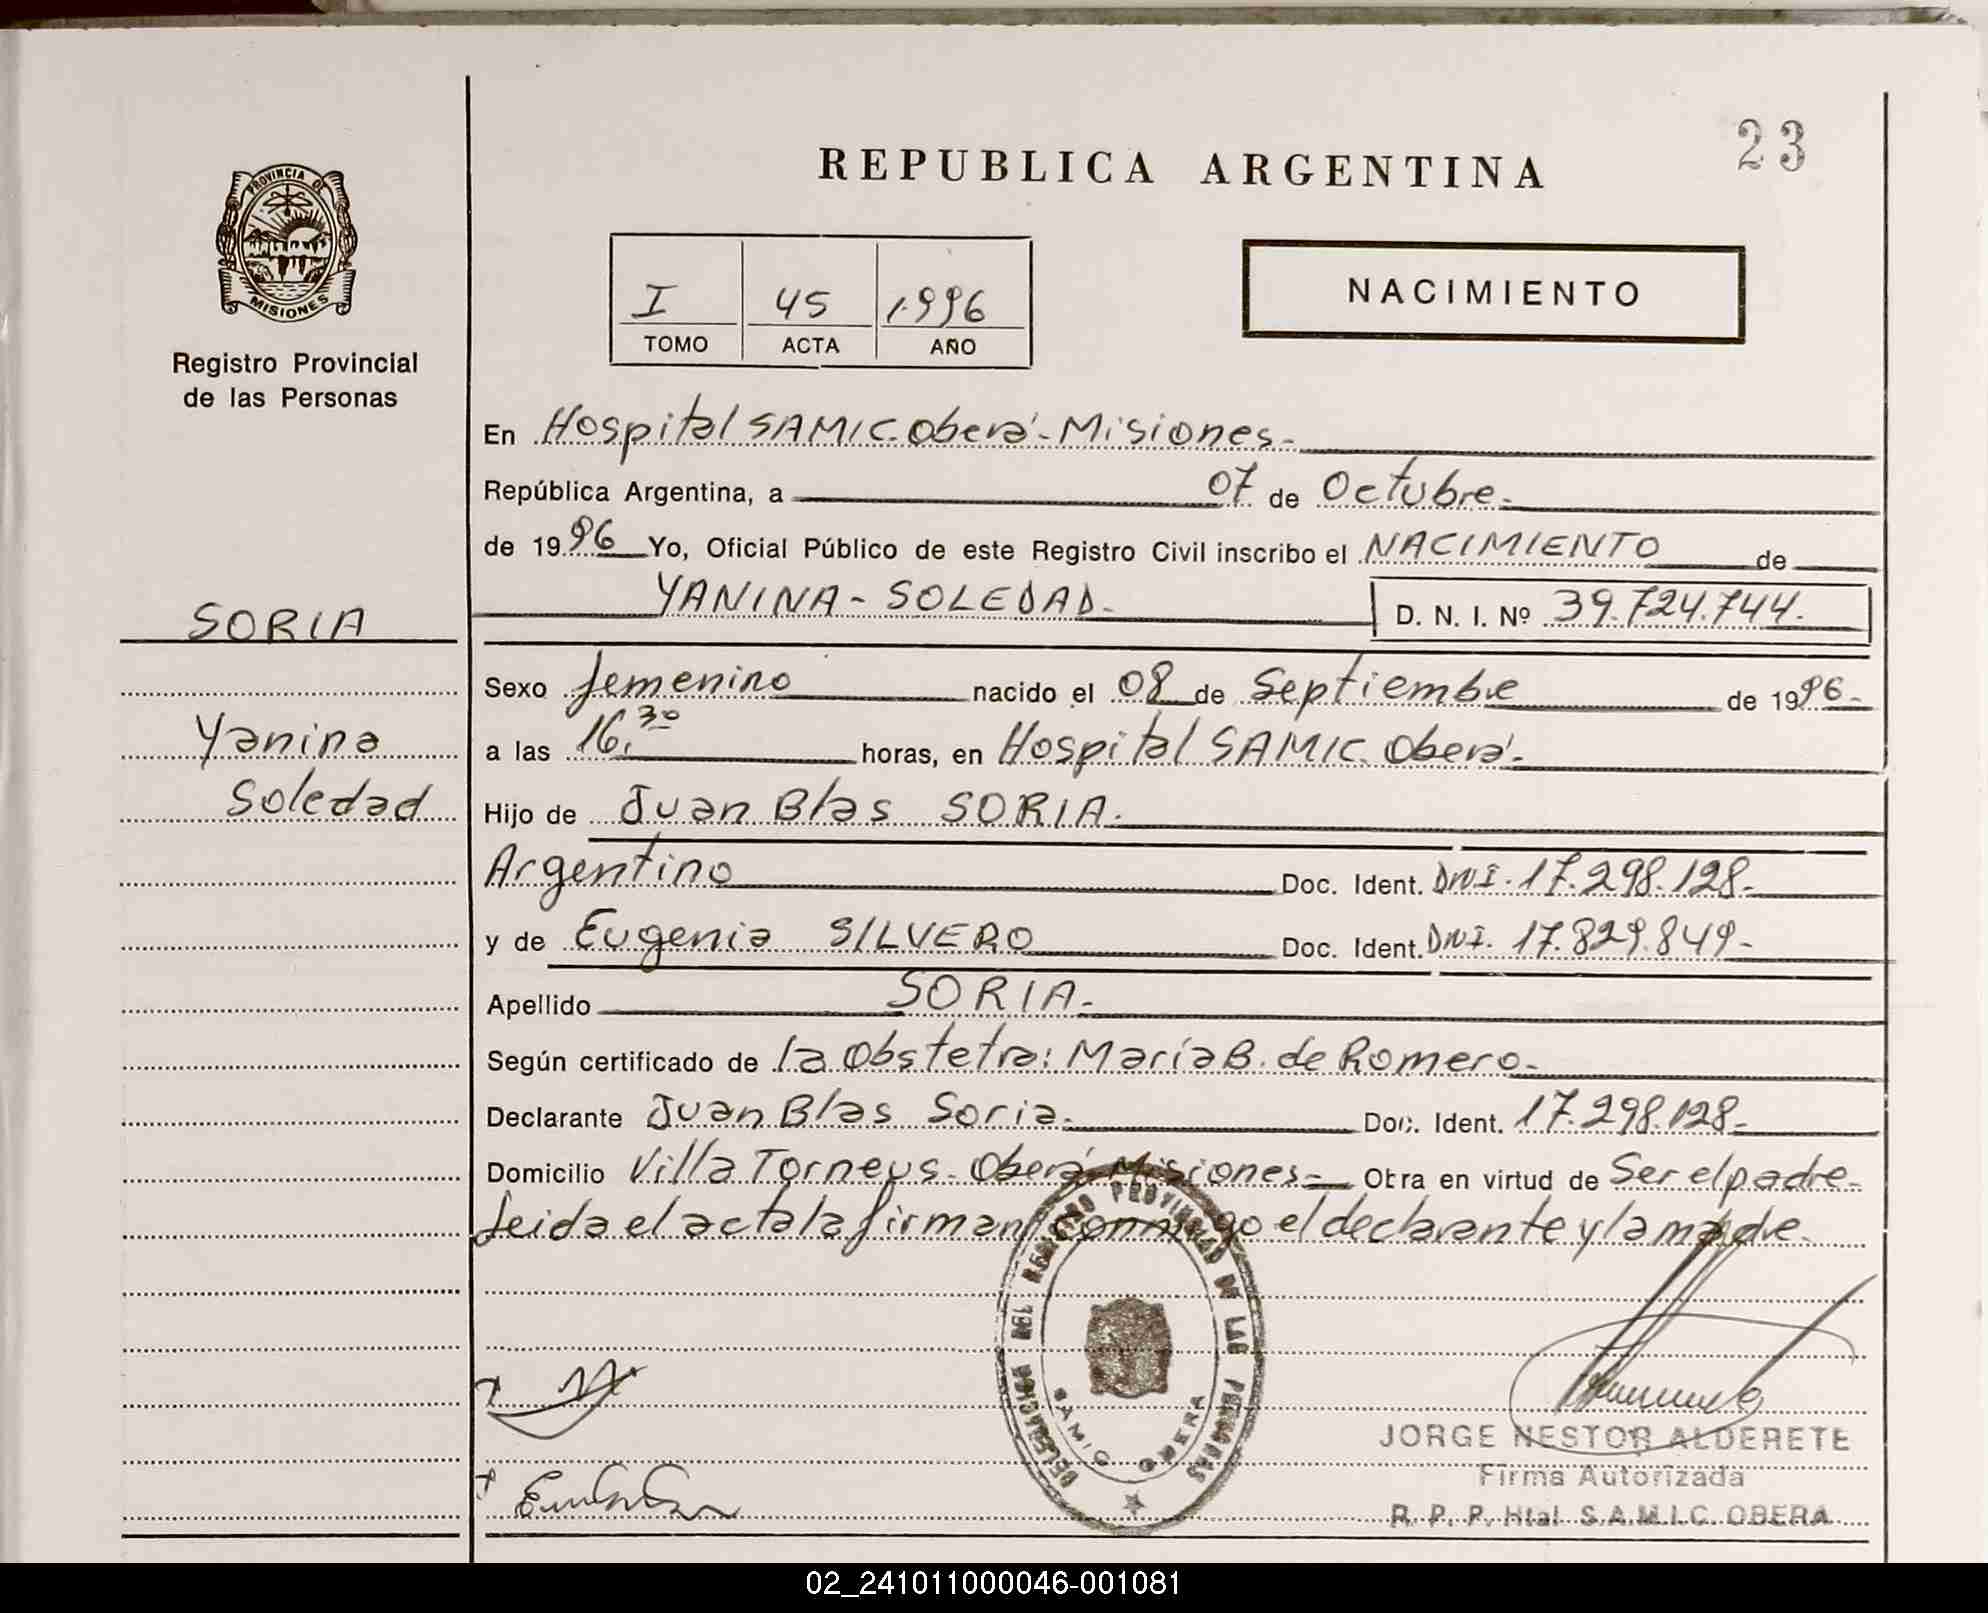 23
REPUBLICA ARGENTINA
PROVINCIA DE
MISIONES
Registro Provincial
de las Personas
I 45 1.996
TOMO ACTA AÑO
NACIMIENTO
En Hospital SAMIC. Oberá - Misiones.-
República Argentina, a 07 de Octubre.-
de 1996 Yo, Oficial Público de este Registro Civil inscribo el NACIMIENTO de
YANINA - SOLEDAD.- D. N. I. Nº 39.724.744.
SORIA
Yanina
Soledad
Sexo femenino nacido el 08 de Septiembre de 1996.-
a las 16,30 horas, en Hospital SAMIC. Oberá.-
Hijo de Juan Blas SORIA.-
Argentino Doc. Ident. DNI. 17.298.128.-
y de Eugenia SILVERO Doc. Ident. DNI. 17.829.849.-
Apellido SORIA.-
Según certificado de la Obstetra: María B. de Romero.-
Declarante Juan Blas Soria.- Doc. Ident. 17.298.128.-
Domicilio Villa Torneus - Oberá Misiones.- Obra en virtud de Ser el padre.-
Leida el acta la firman conmigo el declarante y la madre.
DELEGACION DEL REGISTRO PROVINCIAL DE LAS PERSONAS
SAMIC OBERA
JORGE NESTOR ALDERETE
Firma Autorizada
R. P. P. Htal. S.A.M.I.C. OBERA
02_241011000046-001081